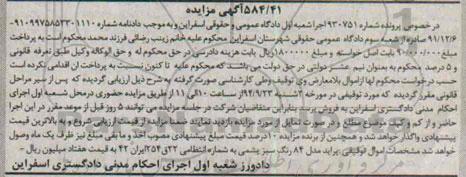 ۵۸۴/۴۱آگهی مزایده
در خصوص پرونده شماره ۹۳۰۷۵۱ اجرا شعبه اول دادگاه عمومی و حقوقی اسفراین و به موجب دادنامه شماره ۹۱۰۹۹۷۵۸۵۳۳۰۱۱۱۰-
۹۱/۱۲/۶ شعبه سوم دادگاه عمومی حقوقی شهرستان اسفراین محکوم علیه خانم زینب رضائی فرزند محمد محکوم است به پرداخت
مبلغ ۹۰۰۰۰۰۰۰ ریال بابت اصل خواسته و مبلغ ۱۸۰۰۰۰۰ ریال بابت هزینه دادرسی در حق محکوم له و حق الوکاله وکیل طبق تعرفه قانونی
و ۵ درصد محکوم به عنوان نیم عشر دولتی در حق دولت می باشد که محکوم علیه تا کنون نسبت به پرداخت آن اقدامی نکرده است
حسب درخواست محکوم لها از اموال بلامعارض وی توقیف و طی کارشناسی صورت گرفته به شرح ذیل ارزیابی گردیده که پس از سیر مراحل
قانونی مقرر گردیده که مورد توقیفی در مورخه ۹۴/۹/۲۳ از ساعت ۱۰ الی ۱۱ از طریق مزایده حضوری در محل شعبه اول اجرای
احکام مدنی دادگستری اسفراین به فروش برسد بنابراین متقاضیان شرکت در جلسه مزایده می توانند ۵ روز قبل از موعد مقرر در این اجرا
حاضر و از کم و کیف موضوع مطلع و در صورت تمایل از مورد مزایده بازدید نمایند ضمنا مزایده از قیمت ارزیابی شروع و به بالاترین قیمت
پیشنهادی واگذار خواهد شد و همچنین از برنده مزایده ۱۰درصد قیمت مبلغ پیشنهادی مصوب اخذ و ما بقی مبلغ نیز ظرف یک ماه وصول
خواهد شد مشخصات اموال توقیفی:پراید مدل ۸۴ رنگ سبز یشمی به شماره انتظامی ۳۲ق۲۵۴ ایران ۴۲ به قیمت هفتاد میلیون ریال -
دادورز شعبه اول اجرای احکام مدنی دادگستری اسفراین